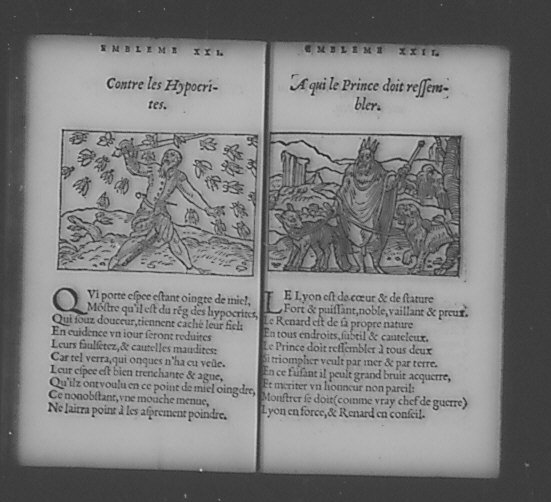 EMBLEME XXI.
Contre les Hypocri-
tes.
QVi porte espee estant oingte de miel,
Mõstre qu'il est du rẽg des hypocrites,
Qui souz douceur, tiennent caché leur fiel:
En euidence vn iour seront reduites
Leurs faulsetez, & cautelles maudites:
Car tel verra, qui onques n'ha cu veüe.
Leur espee est bien trenchante & ague,
Qu'ilz ont voulu en ce point de miel oingdre,
Ce nonobstant, vne mouche menue,
Ne lairra point à les asprement poindre.
EMBLEME XXII.
A qui le Prince doit ressem-
bler.
LE Lyon est de cœur & de stature
Fort & puissant, noble, vaillant & preux.
Le Renard est de sa propre nature
En tous endroits, subtil & cauteleux.
Le Prince doit ressembler à tous deux
Si triompher veult par mer & par terre.
En ce faisant il peult grand bruit acquerre,
Et meriter vn honneur non pareil:
Monstrer se doit (comme vray chef de guerre)
Lyon en force, & Renard en conseil.